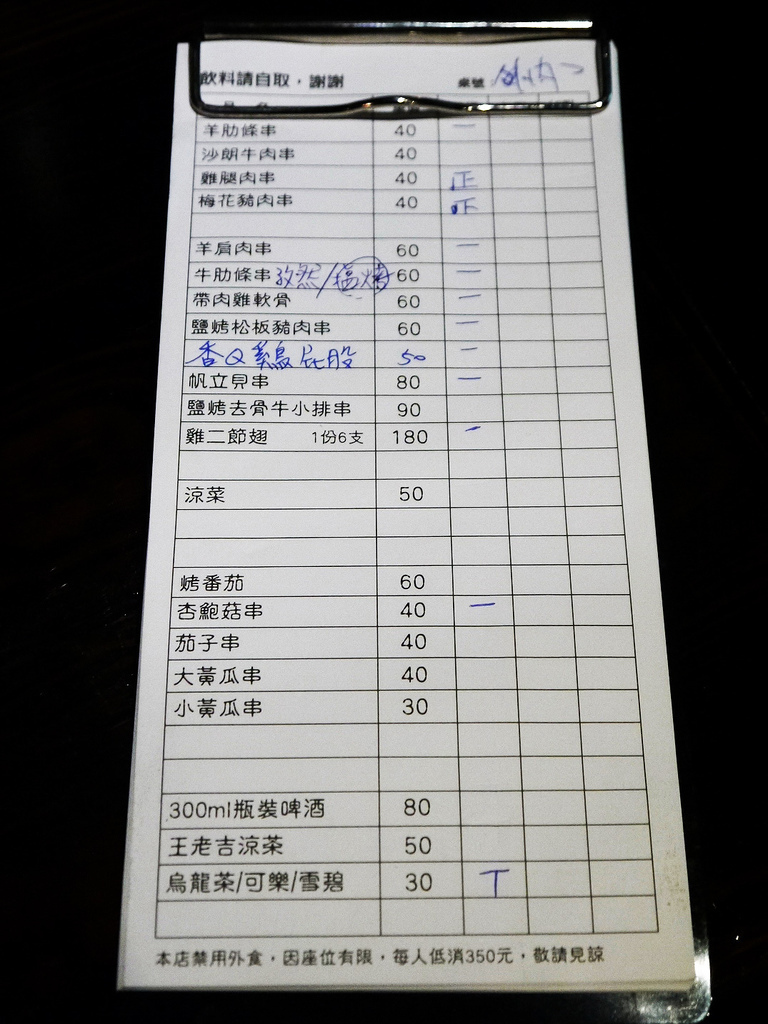 飲料請自取，謝謝 桌號
羊肋條串 40 一
沙朗牛肉串 40
雞腿肉串 40 正
梅花豬肉串 40 正
羊肩肉串 60 一
牛肋條串 孜然/塩烤 60 一
帶肉雞軟骨 60 一
鹽烤松板豬肉串 60 一
香Q雞屁股 50 一
帆立貝串 80 一
鹽烤去骨牛小排串 90
雞二節翅 1份6支 180 一
涼菜 50
烤番茄 60
杏鮑菇串 40 一
茄子串 40
大黃瓜串 40
小黃瓜串 30
300ml瓶裝啤酒 80
王老吉涼茶 50
烏龍茶/可樂/雪碧 30 丅
本店禁用外食，因座位有限，每人低消350元，敬請見諒